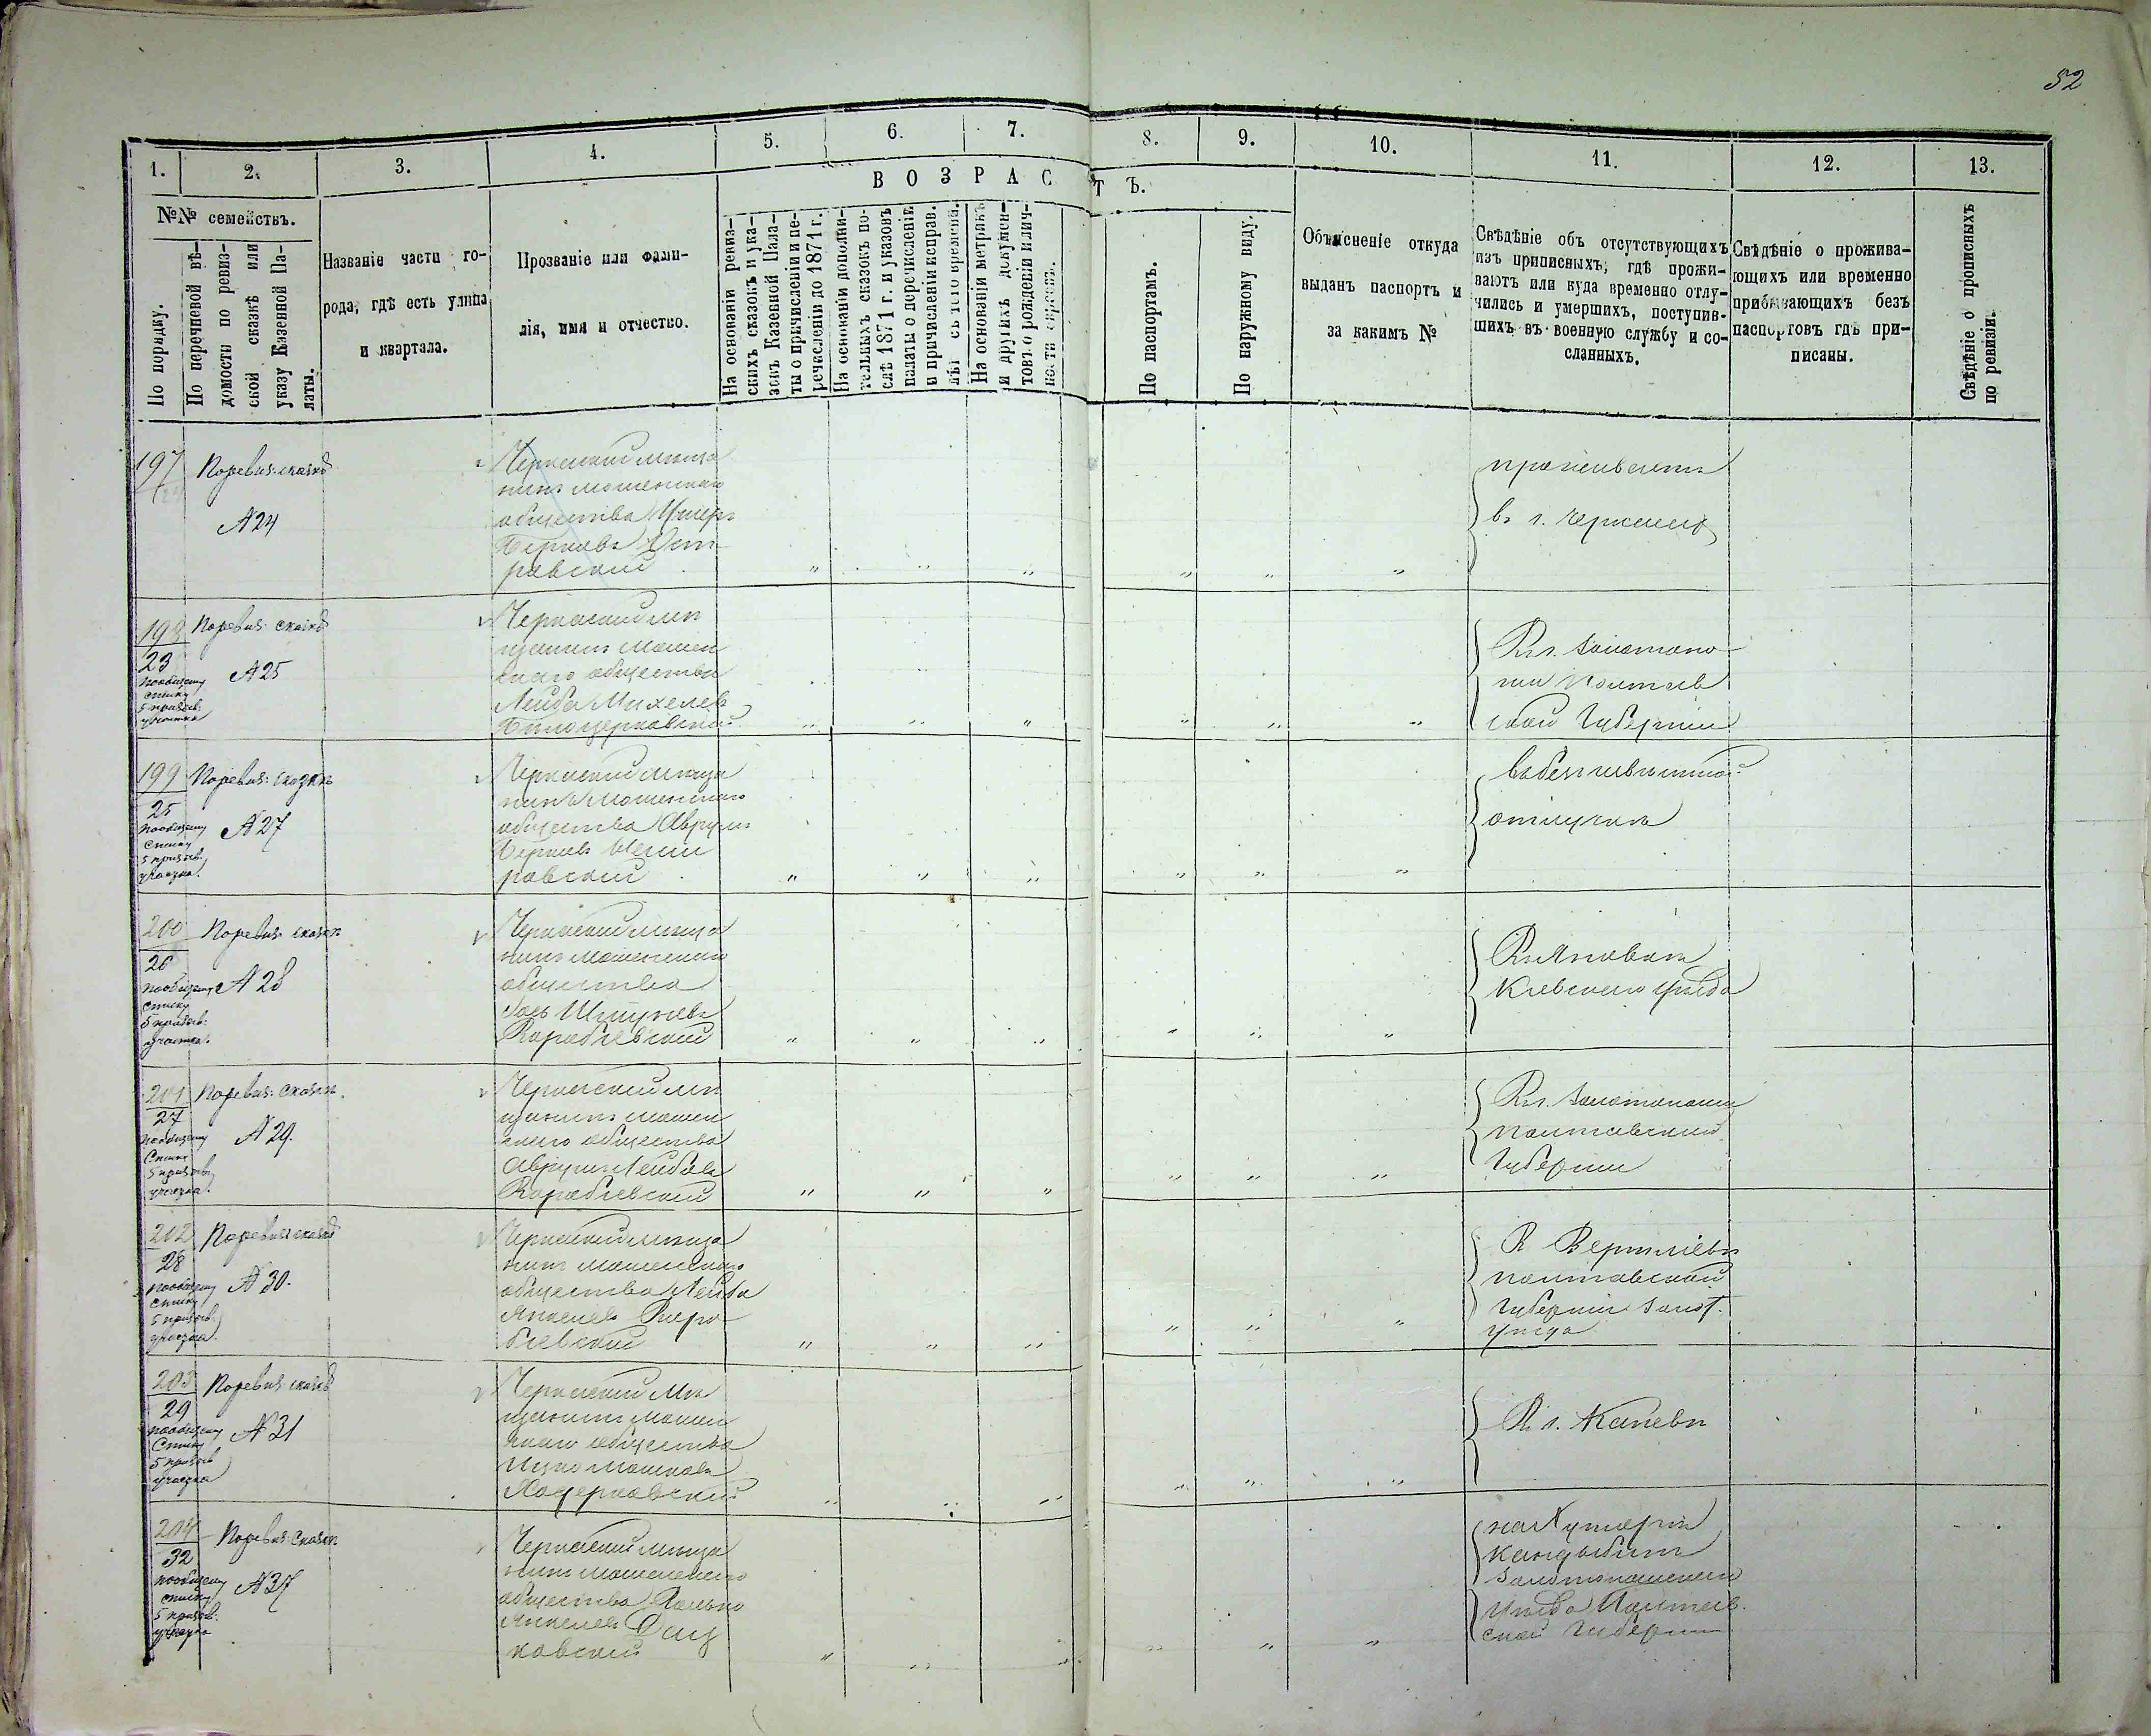 52
1. 2. 3. 4. 5. 6. 7. 8. 9. 10. 11. 12. 13.
ВОЗРАСТЪ.
№№ семействъ.
По порядку.
По перечневой вѣ-
домости по ревиз-
ской сказкѣ или
указу Казенной Па-
латы.
Названіе части го-
рода, гдѣ есть улица
и квартала.
Прозваніе или фами-
лія, имя и отчество.
На основаніи ревиз-
скихъ сказокъ и ука-
зовъ Казенной Пала-
ты о причисленіи и пе-
речисленіи до 1871 г.
На основаніи дополни-
тельныхъ сказокъ по-
слѣ 1871 г. и указовъ
палаты о перечисленіи
и причисленіи исправ.
лѣт съ того времени.
На основаніи метрикъ
и другихъ докумен-
товъ о рожденіи и лич-
По паспортамъ.
По наружному виду.
Объясненіе откуда
выданъ паспортъ и
за какимъ №
Свѣдѣніе объ отсутствующихъ
изъ приписныхъ, гдѣ прожи-
ваютъ или куда временно отлу-
чились и умершихъ, поступив-
шихъ въ военную службу и со-
сланныхъ.
Свѣдѣніе о прожива-
ющихъ или временно
прибывающихъ безъ
паспортовъ гдѣ при-
писаны.
Свѣдѣніе о прописныхъ
по ревизіи.
197
По ревиз: сказкѣ
№ 24
Черкаскій мѣща
нинъ мошенскаго
общества
Берковъ
ровскій
проживаетъ
въ г. Черкасѣ
198
23
по общему
списку
5 призыв:
участка
По ревиз: сказкѣ
№ 25
Черкаскій мѣ
щанинъ мошен
скаго общества
Лейба Михелевъ
Бѣлоцерковскій
Въ г. Золотоно
ши Полтав
ской Губерніи
199
25
по общему
списку
5 призыв.
участка.
По ревиз: сказкѣ
№ 27
Черкаскій мѣща
нинъ Мошенскаго
общества Аврумъ
Берковъ
ровскій
въ безъизвѣстной
отлучкѣ
200
26
по общему
списку
5 призыв:
участка.
По ревиз: сказкѣ
№ 28
Черкаскій мѣща
нинъ мошенскаго
общества
Шмулевъ
Коробіевскій
Кіевскаго уѣзда
201
27
по общему
списку
5 призыв
участка.
По ревиз: сказкѣ.
№ 29.
Черкаскій мѣ
щанинъ мошен
скаго общества
Аврумъ Лейбовъ
Коробіевскій
Въ г. Золотоноши
Полтавской
Губерніи
202
28
по общему
списку
5 призыв:
участка.
По ревиз: сказкѣ
№ 30.
Черкаскій мѣща
нинъ мошенскаго
общества Лейба
Янкелевъ Коро
біевскій
В
полтавской
губерніи Золот.
уѣзда
203
29
по общему
списку
5 призыв
участка
По ревиз: сказкѣ
№ 31
Черкаскій мѣ
щанинъ мошен
скаго общества
Ицко Мошковъ
В г. Каневѣ
204
32
по общему
списку
5 призыв:
участка
По ревиз: сказкѣ
№ 37
Черкаскій мѣща
нинъ мошенскаго
общества
Янкелевъ
ковскій
на Хуторѣ
Золотоношскаго
Уѣзда Полтав.
ской Губерніи